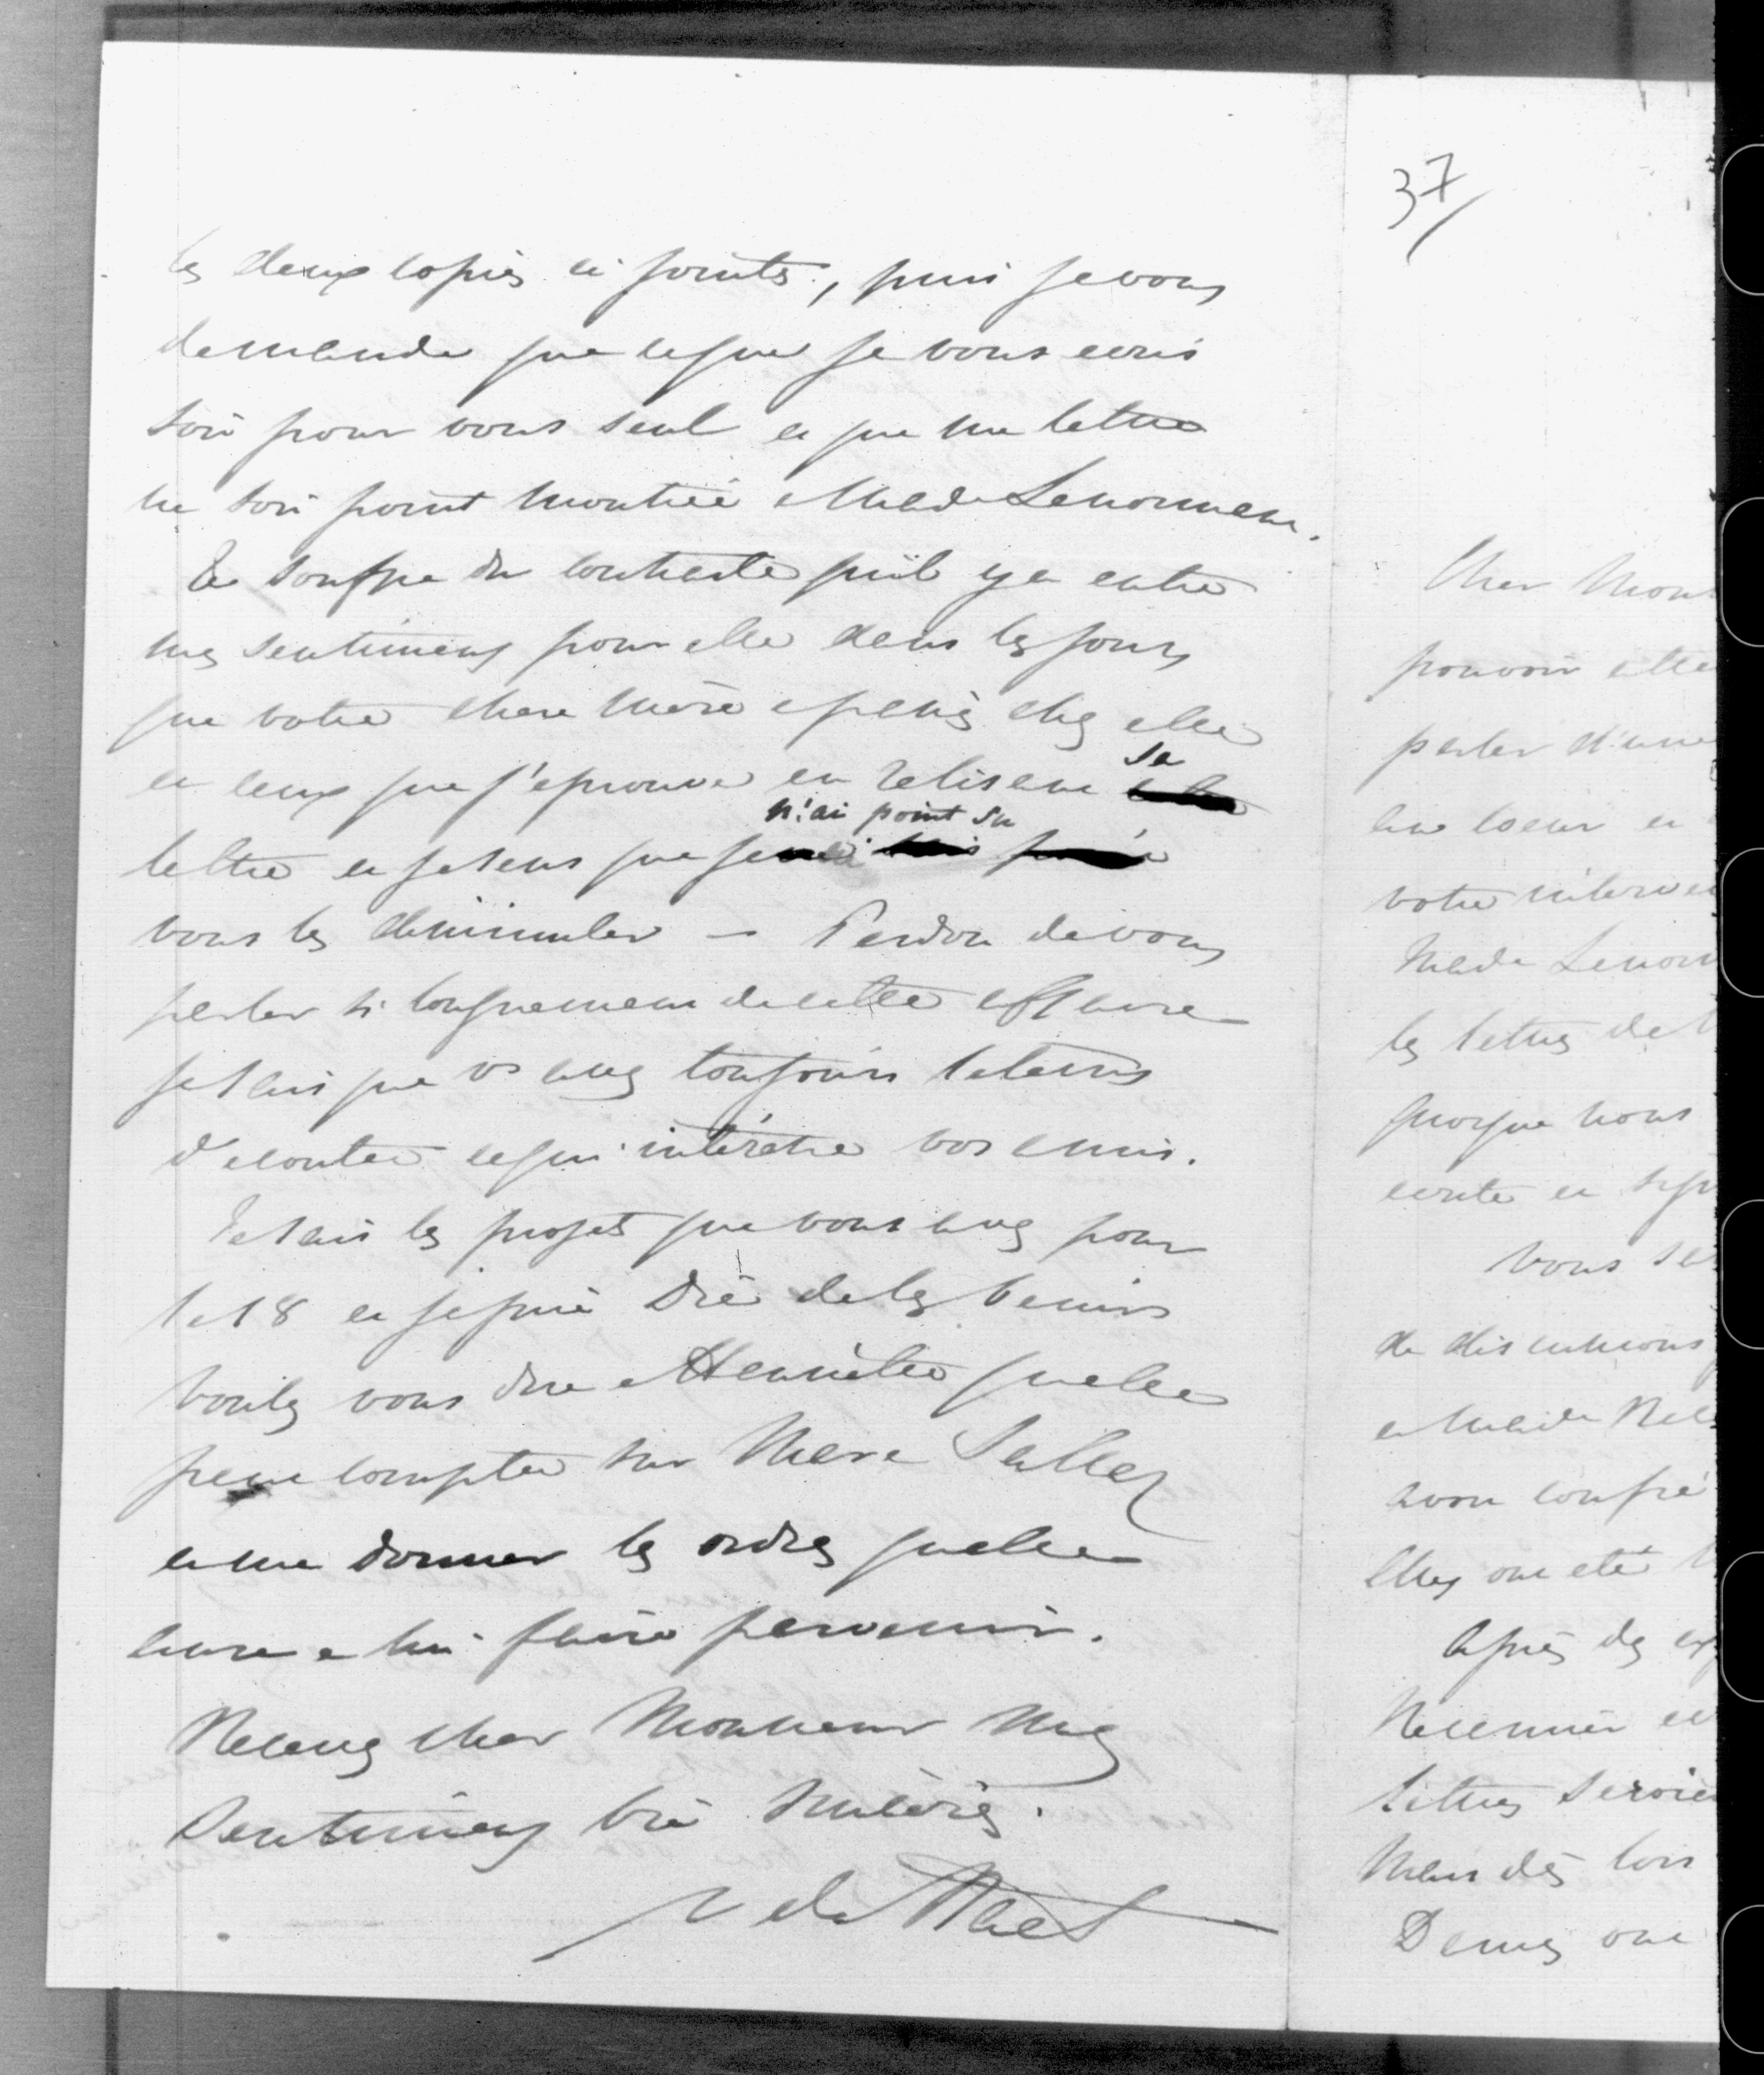 les deux copies ci jointes, puis je vous
demande que ce que je vous ecris
soit pour vous seul et que ma lettre
ne soit point montrée a Made Lenormant.
Je souffre du contraste qu'il y a entre
mes sentimens pour elle dans les jours
que votre chere mère a passés chez elle
et ceux que j'eprouve en relisant sa
lettre et je sens que je n'ai point su
vous les dissimuler – Pardon de vous
parler si longuement de cette affaire
je sais que vs avez toujours le tems
d'ecouter ce qui intéresse vos amis.
Je sais les projets que vous avez pour
le 18 et je prie Dieu de les benir
voulez vous dire a Henriette quelle
peut compter sur
et me donner les ordres quelle
aura a lui faire parvenir.
Recevez cher Monsieur mes
Sentimens bien sincères.
37
Cher Mons
pouvoir
parler d'une
votre interven
Made Lenorm
les lettres de
quoique nous
ecrite et
vous
de discussions
a Made
avoir confié
Elles ont eté
après des
Recamier et
lettres
Mais dès lors
ont